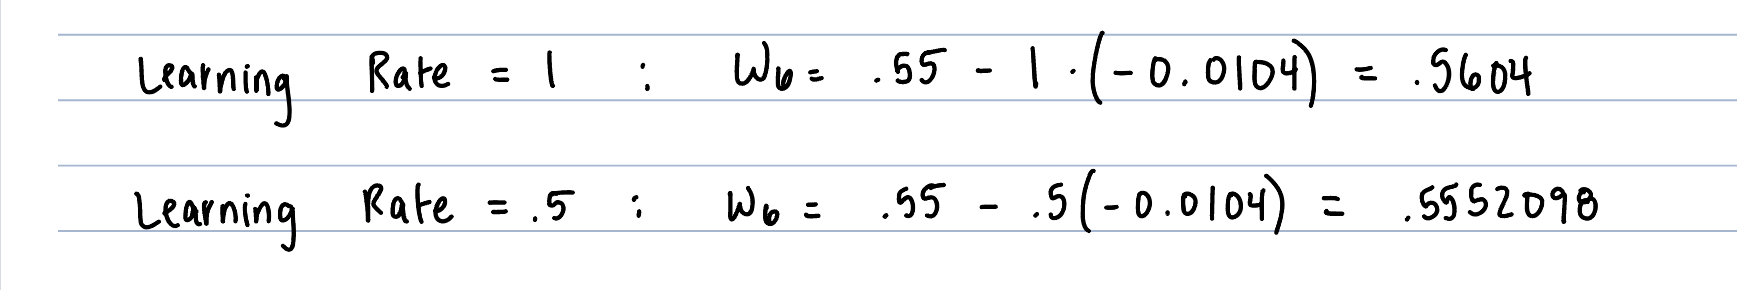 Learning Rate = 1 : W6 = .55 - 1 · (-0.0104) = .5604
Learning Rate = .5 : W6 = .55 - .5(-0.0104) = .5552098